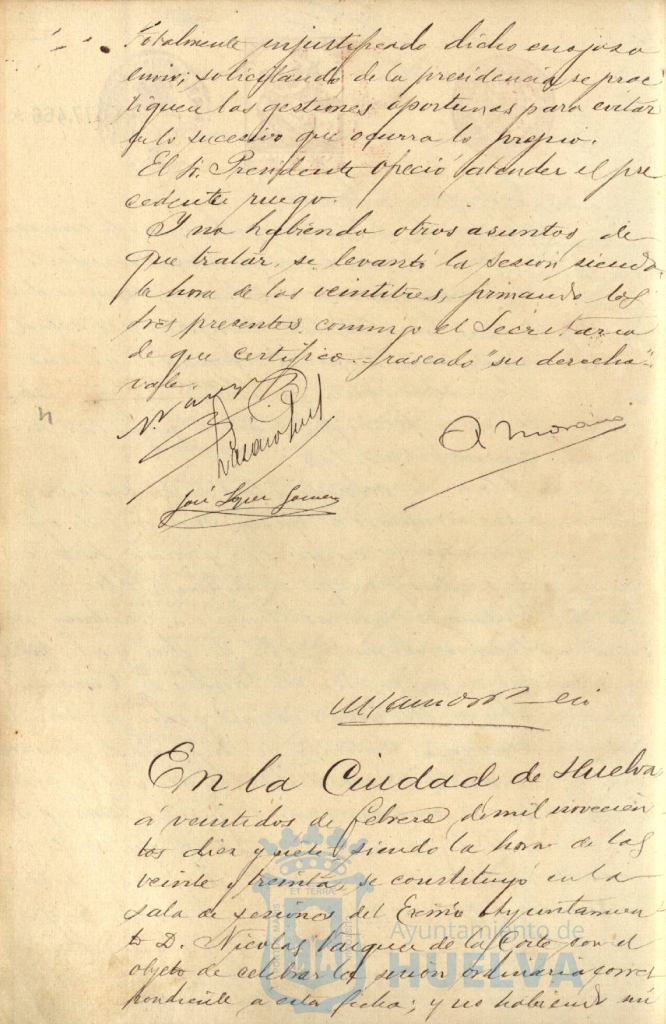 totalmente injustificado dicho enojoso
envio; solicitando de la presidencia se prac
tiquen las gestiones oportunas para evitar
en lo sucesivo que ocurra lo propio.
El Sr. Presidente ofreció atender el pre
cedente ruego.
Y no habiendo otros asuntos de
que tratar, se levantó la sesion siendo
la hora de las veintitres, firmando los
Sres presentes conmigo el Secretario
de que certifico.=rascado "su derecho"=
vale.
A Moreno
José Lopez Gomez
En la Ciudad de Huelva
á veintidos de febrero de mil novecien
tos diez y siete siendo la hora de las
veinte y treinta, se constituyó en la
sala de sesiones del Excmo Ayuntamien
to D. Nicolas Vazquez de la Corte con el
objeto de celebrar la sesión ordinaria corres
pondiente a esta fecha; y no habiendo nú
Ayuntamiento de
HUELVA